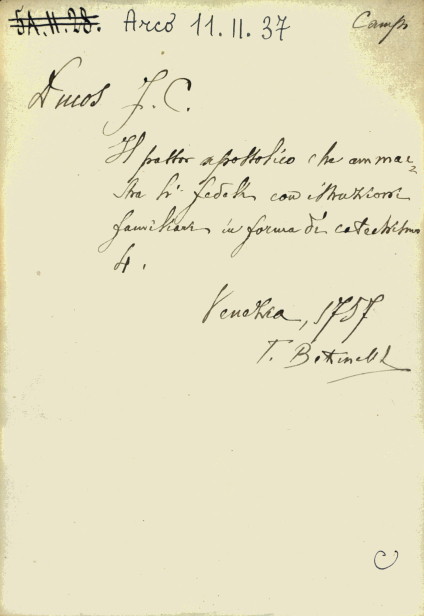 5A.II.28. Arcò 11.II.37
Camp
Ducos J. C.
Il pastor apostolico che ammae=
stra li fedeli con istruzioni
familiari in forma di catechismo
4.
Venezia, 1757
T. Bettinelli
C